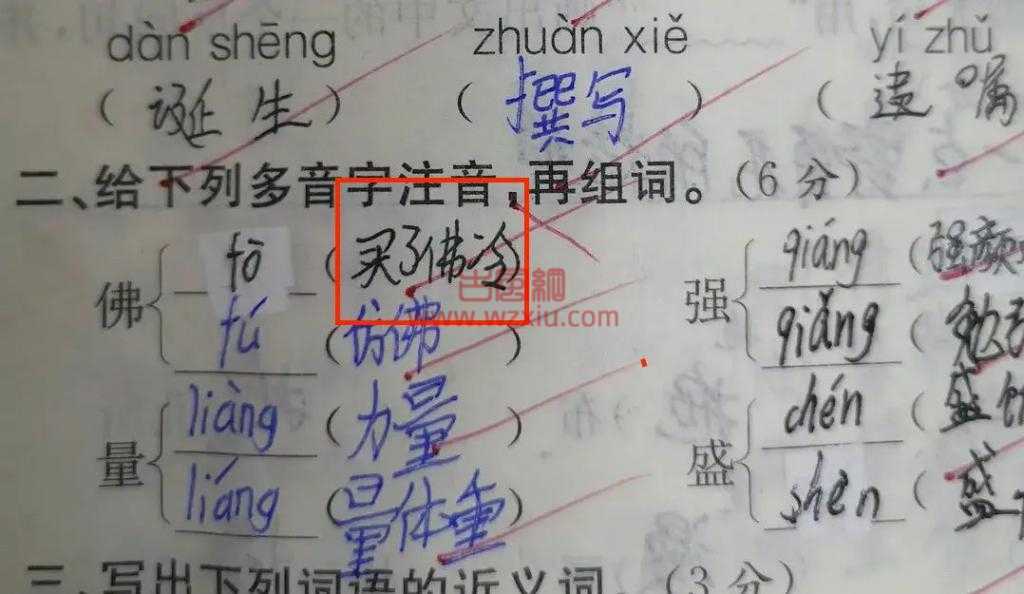 dàn shēng zhuàn xiě yí zhǔ
(诞生) (撰写) (遗嘱
二、给下列多音字注音,再组词。(6分)
佛 fō (买了佛冷)
fú (仿佛)
强 qiáng (强颜
qiǎng (勉
量 liàng (力量)
liáng (量体重)
盛 chén (盛
shèn (盛
古屋網
www.wzxiu.com
三、写出下列词语的近义词。(3分)